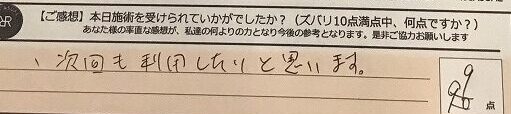 【ご感想】本日施術を受けられていかがでしたか？（ズバリ10点満点中、何点ですか？）
あなた様の率直な感想が、私達の何よりの力となり今後の参考となります。是非ご協力お願いします
、次回も利用したいと思います。
点